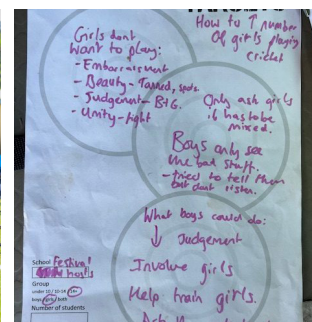 How to ↑ number
Of girls playing
cricket
Girls dont
want to play:
- Embarrassment
- Beauty - Tanned, spots.
- Judgement - B+G.
- Unity - tight
Only ask girls
if has to be
mixed.
Boys only see
the bad stuff.
- tried to tell them
but dont listen.
What boys could do:
↓ Judgement
Involve girls
Help train girls.
School Festival
hosts
Group
under 10 / 10-14 / 14+
boys / girls / both
Number of students